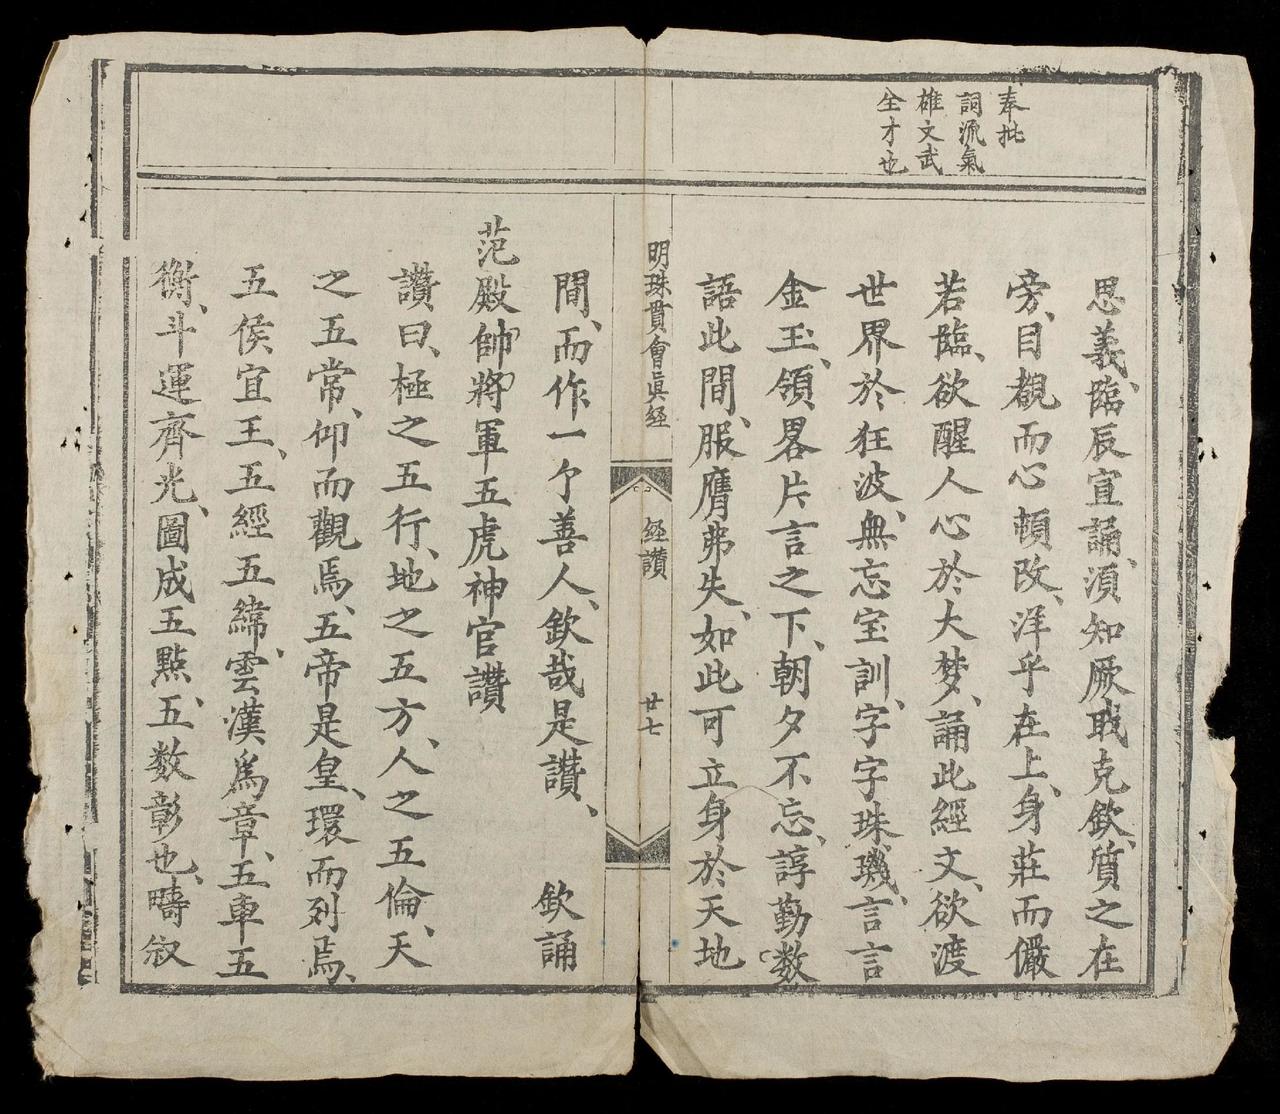 奉批
詞源氣
雄文武
全才也
思義、臨辰宣誦、須知厥職克欽、質之在
旁、目覩而心頓改、洋乎在上、身莊而儼
若臨、欲醒人心於大梦、誦此經文、欲渡
世界於狂波、無忘宝訓、字字珠璣、言言
金玉、領畧片言之下、朝夕不忘、諄勤数
語此間、服膺弗失、如此可立身於天地
明珠貫會眞經
經讚
廿七
間、而作一个善人、欽哉是讚、 欽誦
范殿帥將軍五虎神官讚
讚曰、極之五行、地之五方、人之五倫、天
之五常、仰而觀焉、五帝是皇、環而列焉、
五侯宜王、五經五緯、雲漢爲章、五車五
衡、斗運齊光、圖成五點、五数彰也、疇叙